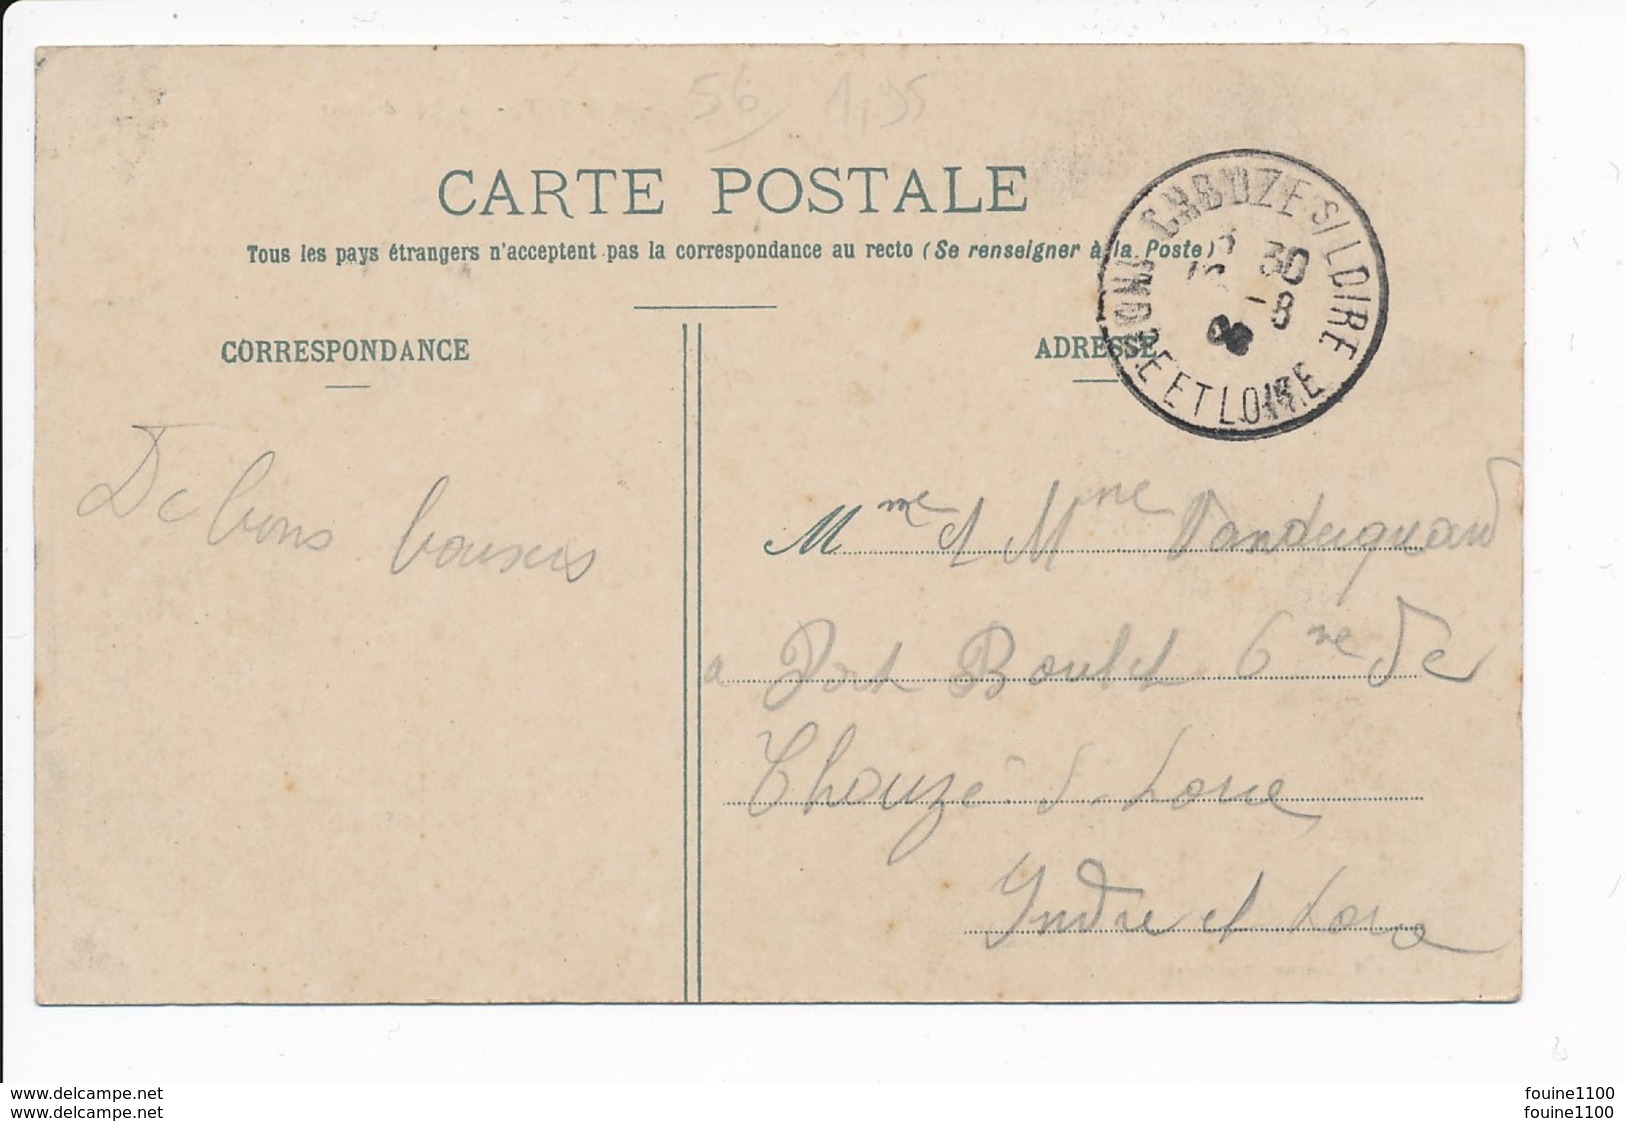 56 1,95
CARTE POSTALE
Tous les pays étrangers n'acceptent pas la correspondance au recto (Se renseigner à la Poste)
CHOUZE S/ LOIRE
30
-8
ET LOIRE
CORRESPONDANCE
ADRESSE
De bons baisers
Mme et Mme
a Port Boulet Cne De
Chouzé-S-Loire
Yndre et Loire
delcampe.net
delcampe.net
fouine1100
fouine1100